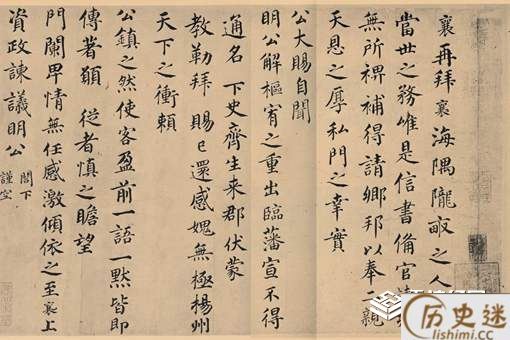 襄再拜襄海隅隴畝之人
當世之務唯是信書備官
無所裨補得請鄉邦以奉親
天恩之厚私門之幸實
公大賜自聞
明公解樞宥之重出臨藩宣不得
通名下史齊生来郡伏蒙
教勒拜賜已還感愧無極楊州
天下之衝賴
公鎮之然使客盈前一語一默皆即
傳著願從者慎之瞻望
門闌卑情無任感激傾依之至襄上
資政諫議明公閣下
謹空
历史迷
lishimi.cc